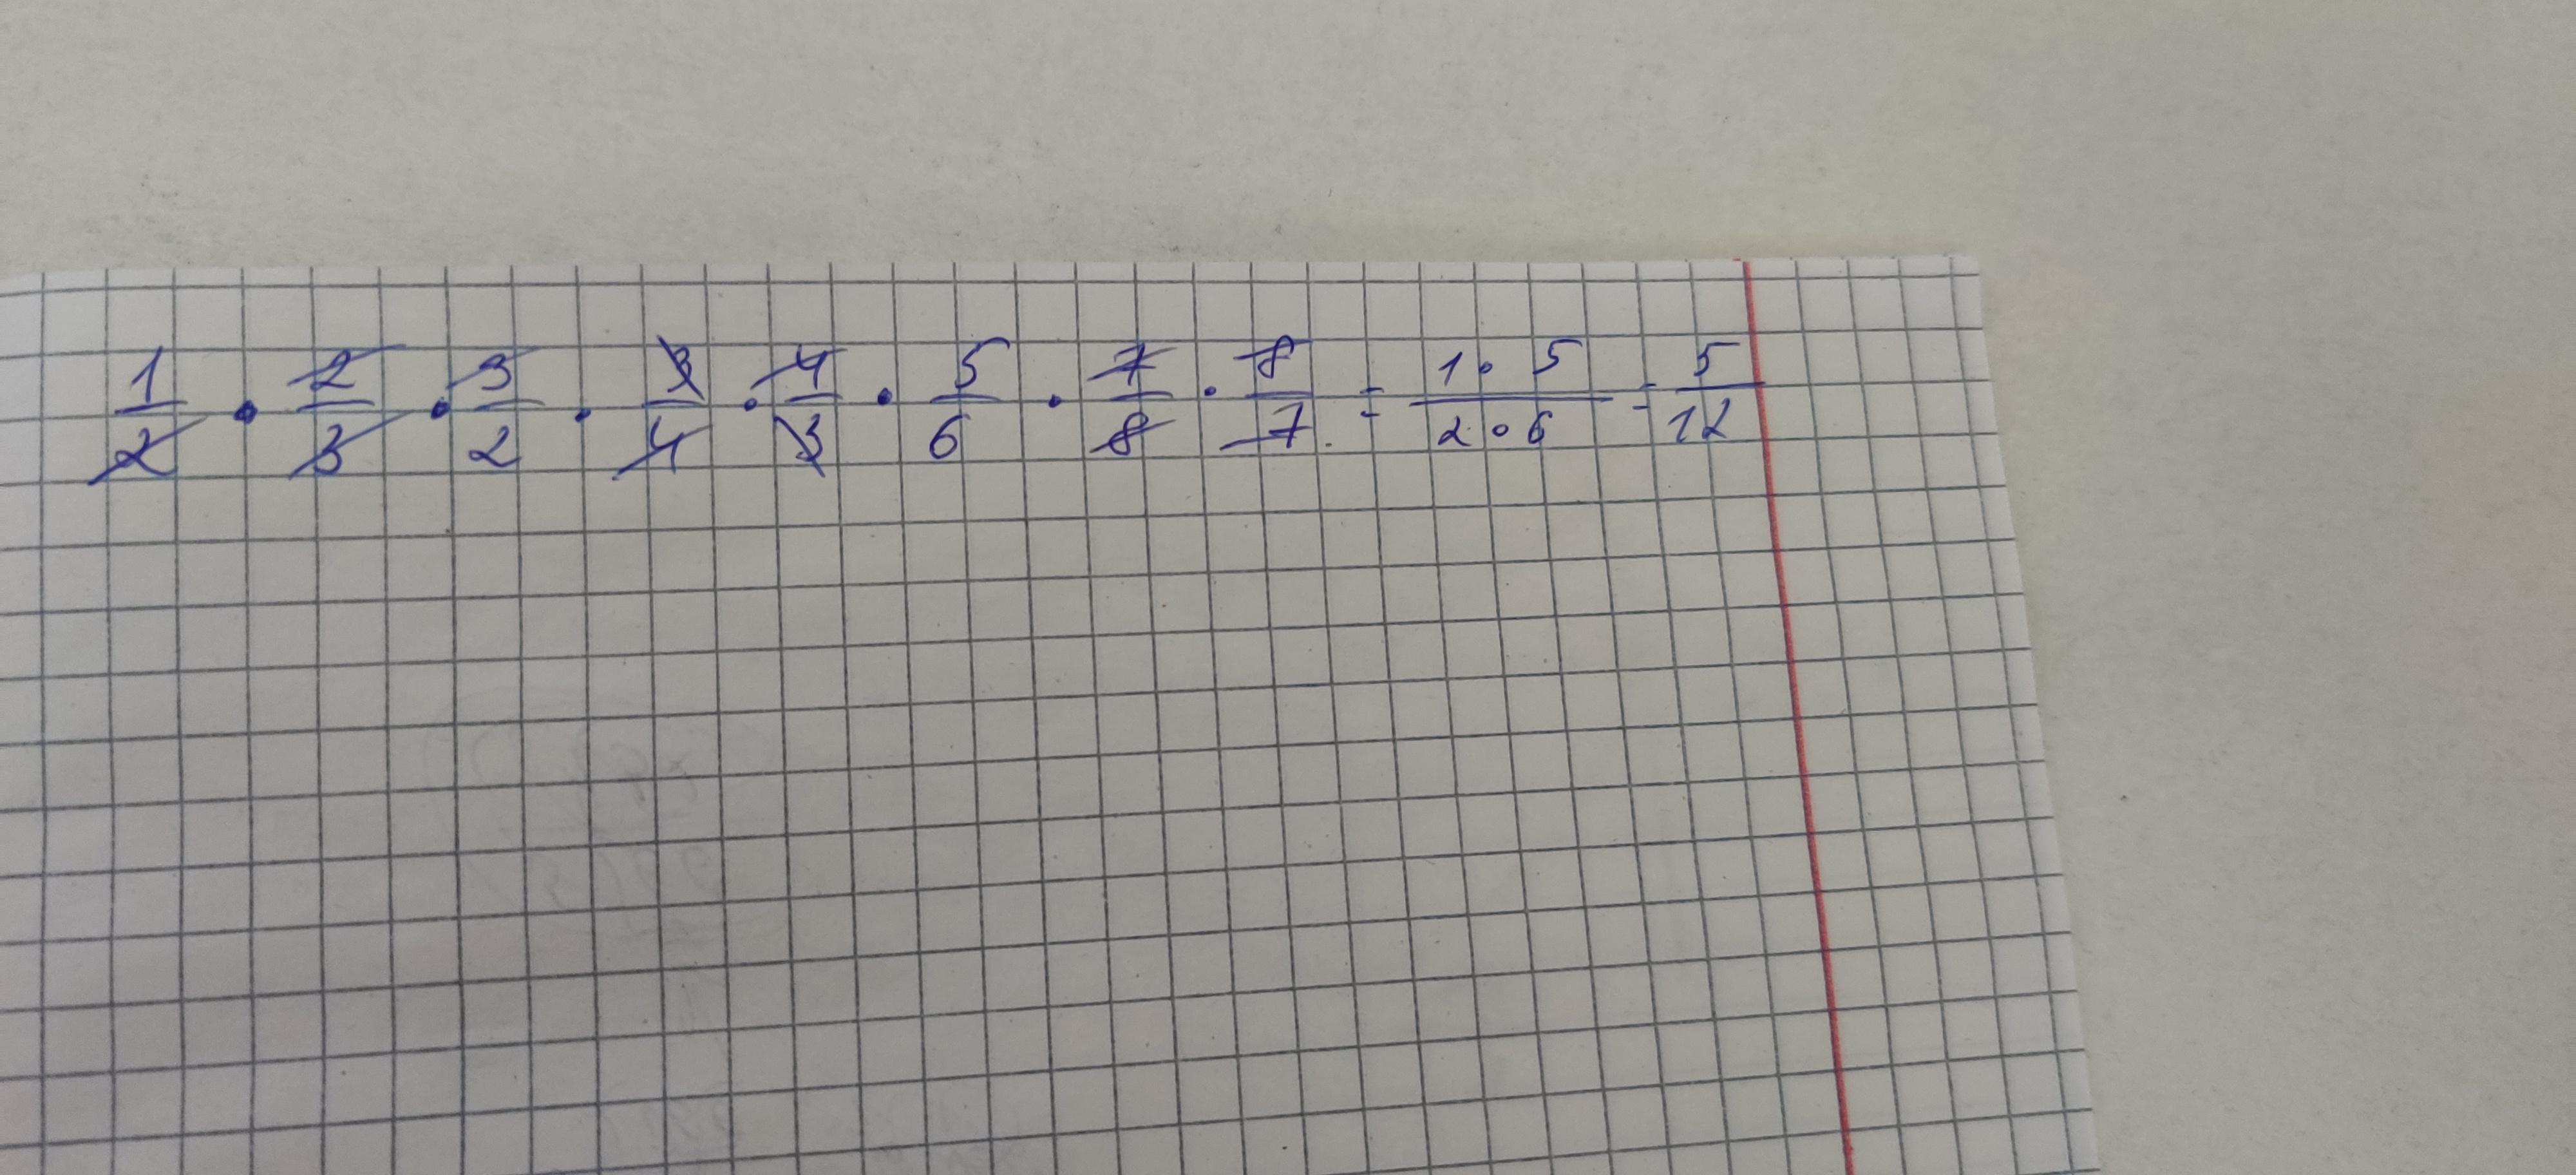 1/2 · 2/3 · 3/2 · 3/4 · 4/3 · 5/6 · 7/8 · 8/7 = 1·5/2·6 = 5/12